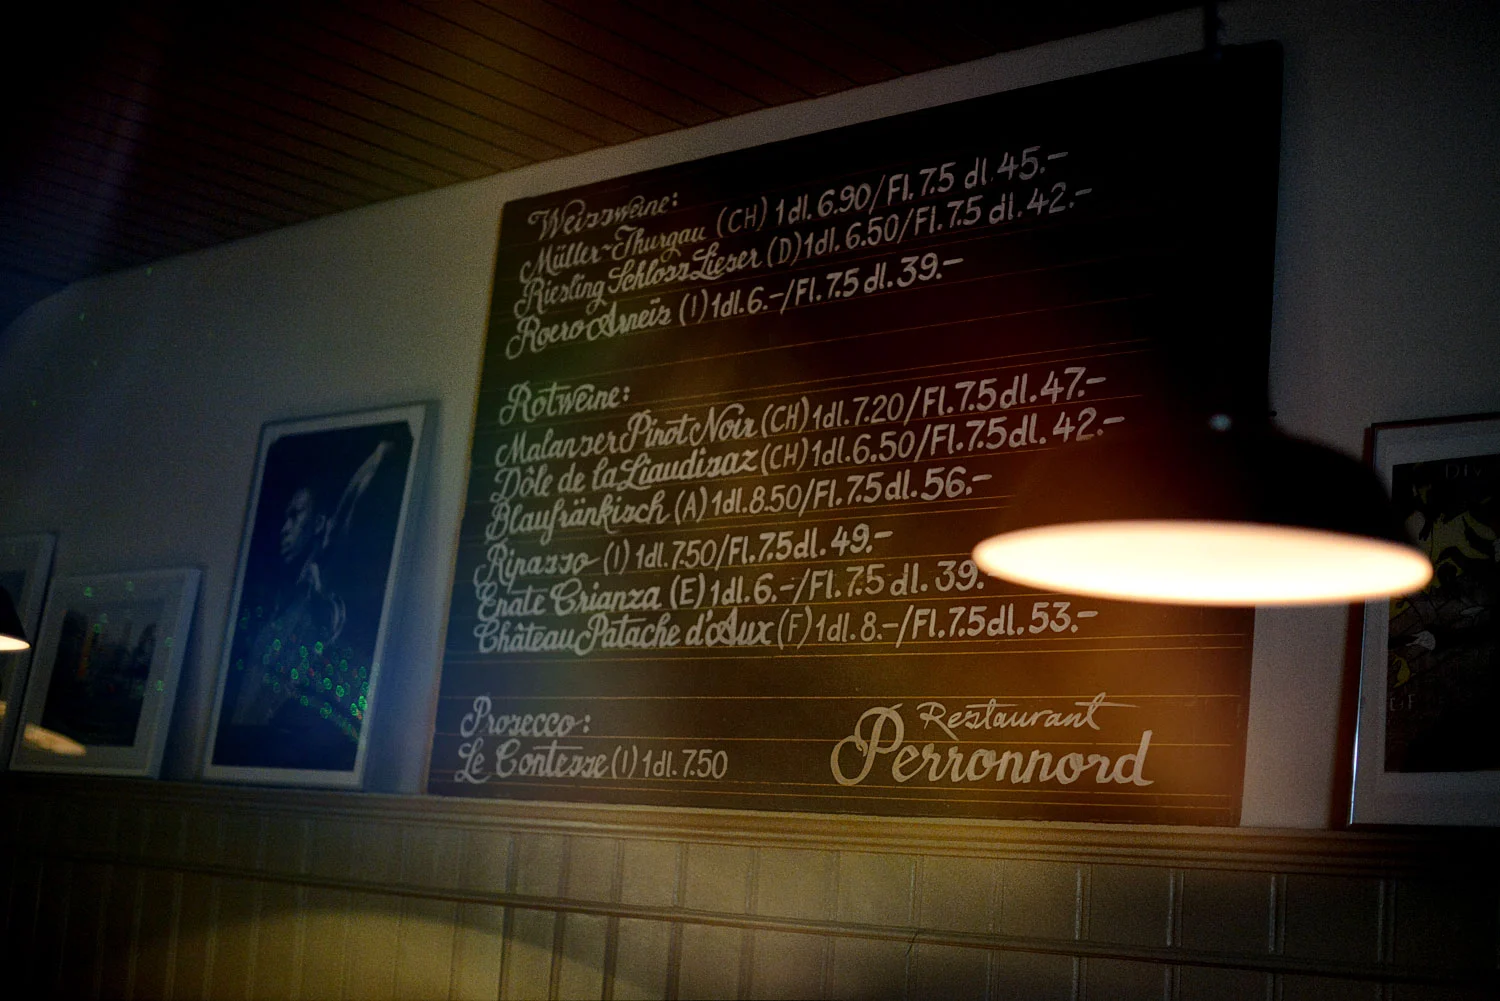 Weissweine:
Müller-Thurgau (CH) 1dl. 6.90/Fl. 7.5 dl. 45.-
Riesling Schloss Lieser (D) 1dl. 6.50/Fl. 7.5 dl. 42.-
Roero Arneis (I) 1dl. 6.-/Fl. 7.5 dl. 39.-
Rotweine:
Malanser Pinot Noir (CH) 1dl. 7.20/Fl. 7.5 dl. 47.-
Dôle de la Liaudisaz (CH) 1dl. 6.50/Fl. 7.5 dl. 42.-
Blaufränkisch (A) 1dl. 8.50/Fl. 7.5 dl. 56.-
Ripasso (I) 1dl. 7.50/Fl. 7.5 dl. 49.-
Enate Crianza (E) 1dl. 6.-/Fl. 7.5 dl. 39.-
Château Patache d'Aux (F) 1dl. 8.-/Fl. 7.5 dl. 53.-
Prosecco:
Le Contesse (I) 1dl. 7.50
Restaurant
Perronnord